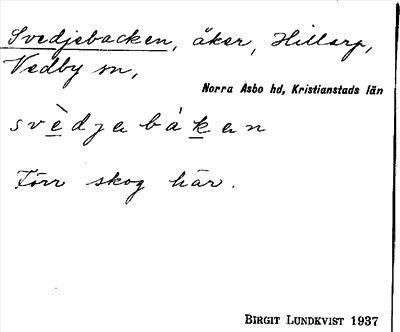 Svedjebacken, åker, Hillarp,
Vedby sn,
Norra Åsbo hd, Kristianstads län
svè̱djabáḵan
Förr skog här.
BIRGIT LUNDKVIST 1937